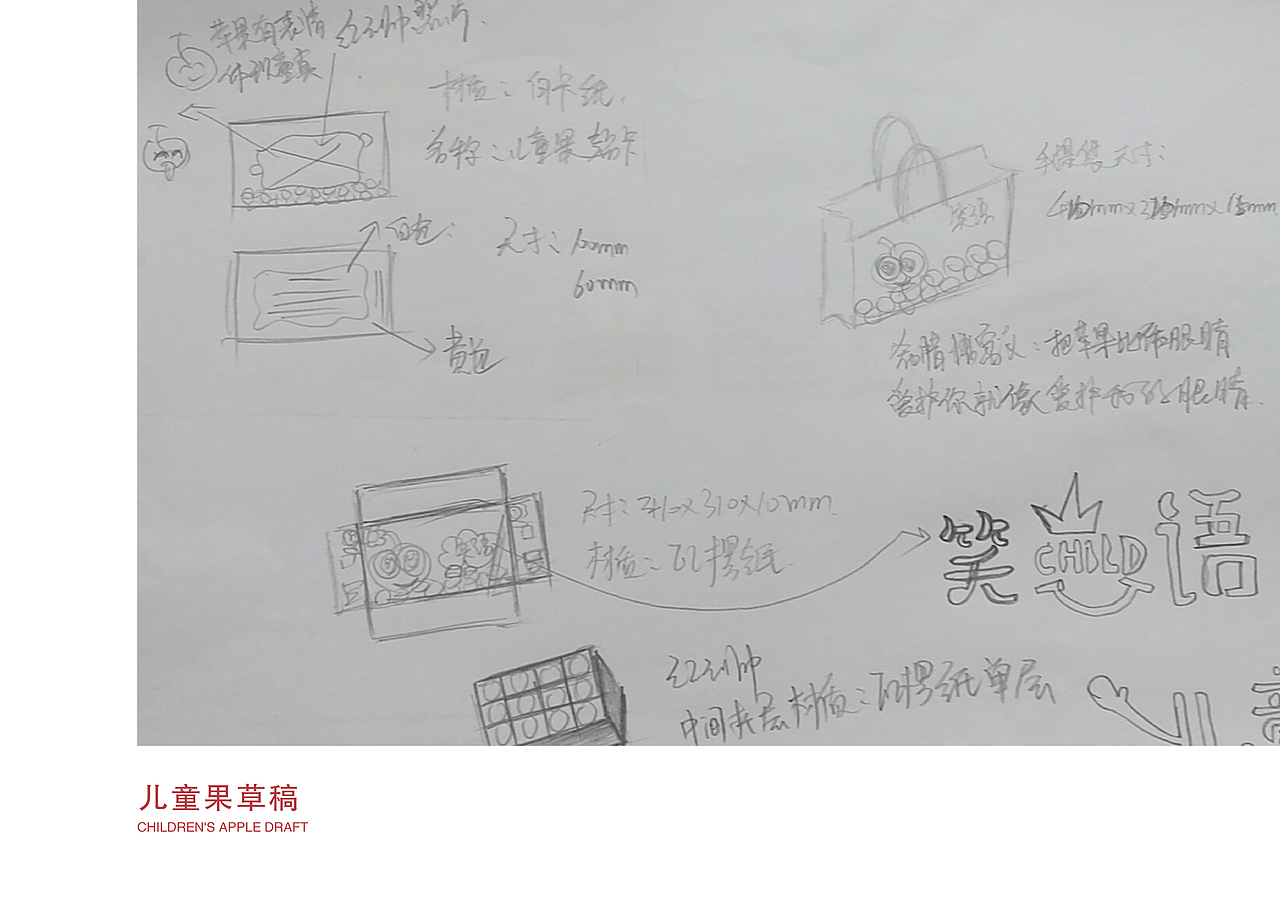 苹果有表情 红红帅照片.
体现童真
材质：白卡纸.
名称：儿童果 卡
白色：
尺寸：100mm
60mm
黄色
手提袋尺寸：
笑语
寓义：把苹果比作眼睛
爱护你就像爱护我的眼睛.
尺寸：x310x10mm.
材质：瓦楞纸
笑语
CHILD
笑语
红红帅
中间夹层材质：瓦楞纸单层
儿童
儿童果草稿
CHILDREN'S APPLE DRAFT